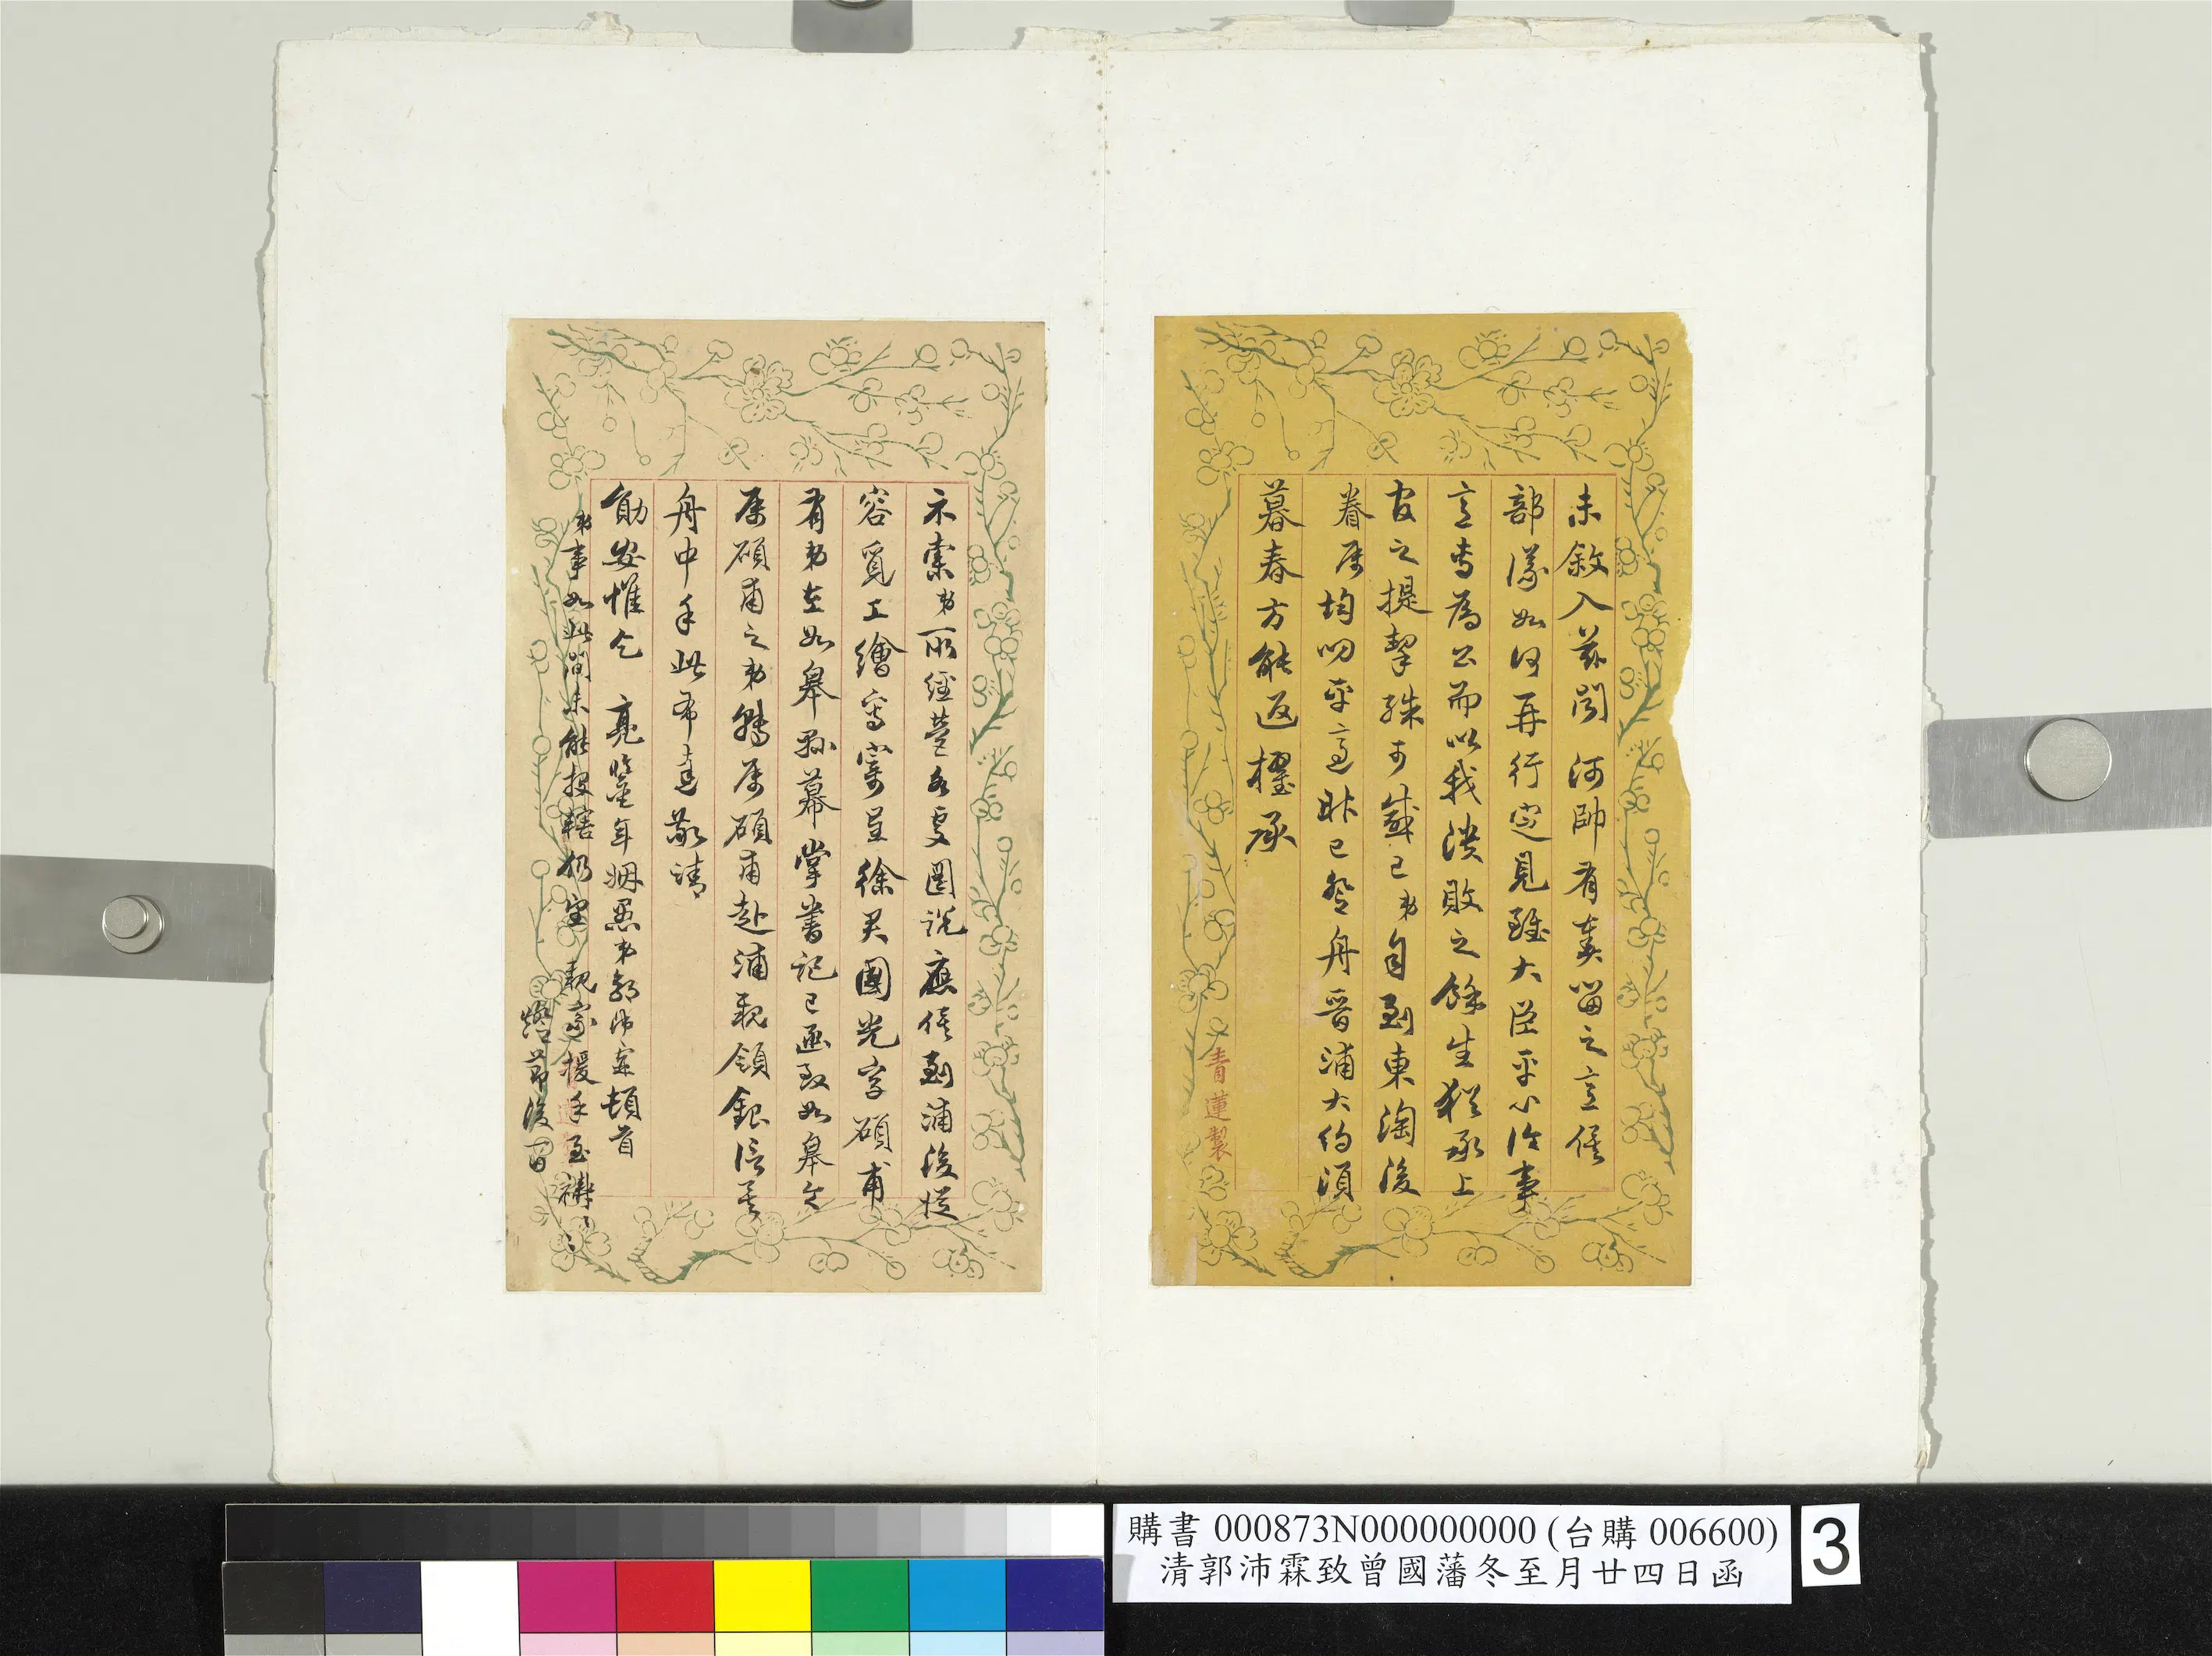 未敘入茲聞 河帥有奏留之言係
部議如何再行定見雖大臣平心論事
言專為公而以我潰敗之餘生猶承上
官之提挈殊可感已弟自到東淘後
眷屬均叨平適昨已登舟晉浦大約須
暮春方能返櫂承
青蓮製
示索弟所經營各支圖說應俟到浦後從
容覓工繪寫寄呈徐君國光字碩甫
有弟在如皋縣幕掌書記已函致如皋令
屬碩甫之弟轉屬碩甫赴浦親領銀信矣
舟中手此布達敬請
勛安惟乞 亮鑒年姻愚弟郭沛霖頓首
弟事如此間未能投轄仍望 親家援手至禱
燈節後一日
購書 000873N000000000 (台購 006600)
清郭沛霖致曾國藩冬至月廿四日函
3